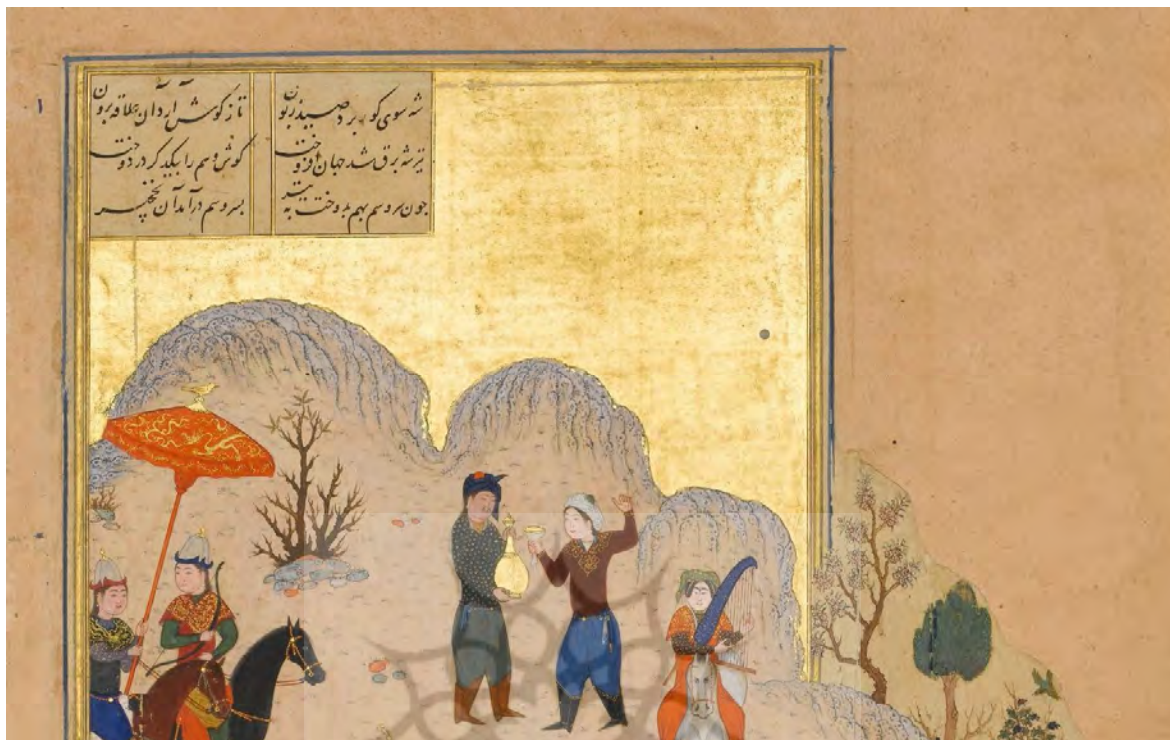 سوی برد صید زبون تا ز کوش آرد آن علاقه برون
تیر شه برق شد جهان افروخت کوش و سم را بیکدکر در دوخت
جون سر و سم بهم بدوخت به تیر بسر و سم درآمد آن نخچیر